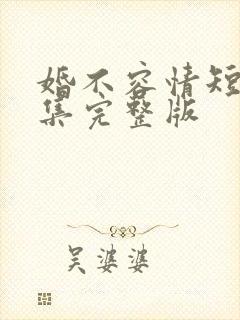 婚不容情短
集完整版
吴婆婆